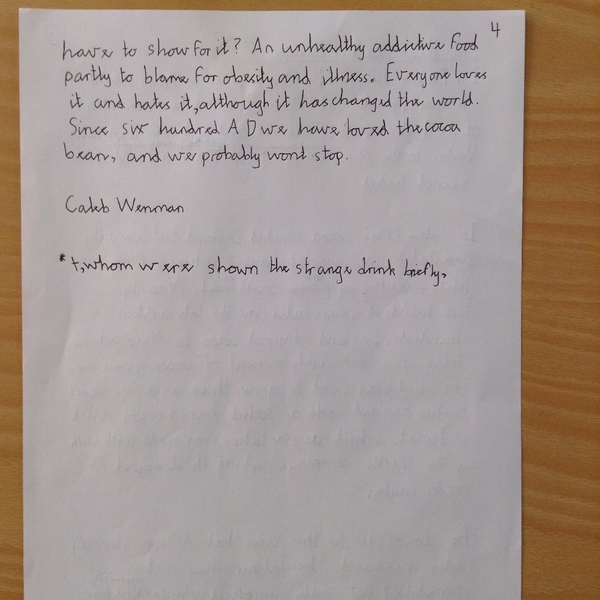 4
have to show for it? An unhealthy addictive food
partly to blame for obesity and illness. Everyone loves
it and hates it, although it has changed the world.
Since six hundred A D we have loved the cocoa
bean, and we probably wont stop.
Caleb Wenman
*t, whom were shown the strange drink briefly,